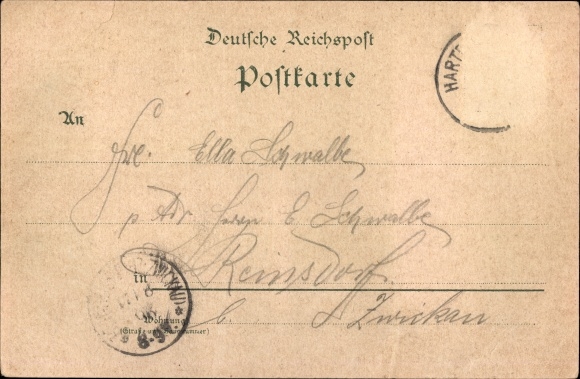 Deutsche Reichspost
Postkarte
HART
An
Frl. Ella Schwalbe
p Adr Herrn E Schwalbe
in Reinsdorf
b. Zwickau
Wohnung
(Straße und Hausnummer)
(ZWICKAU)
8-9